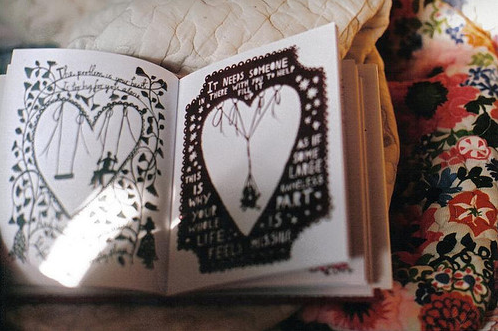 The problem is your heart
It is too big for you alone
IT NEEDS SOMEONE
IN THERE WITH YOU TO HELP
FILL IT
THIS
IS
WHY
YOUR
WHOLE
LIFE
FEELS MISSING
AS IF
SOME
LARGE
NAMELESS
PART
IS